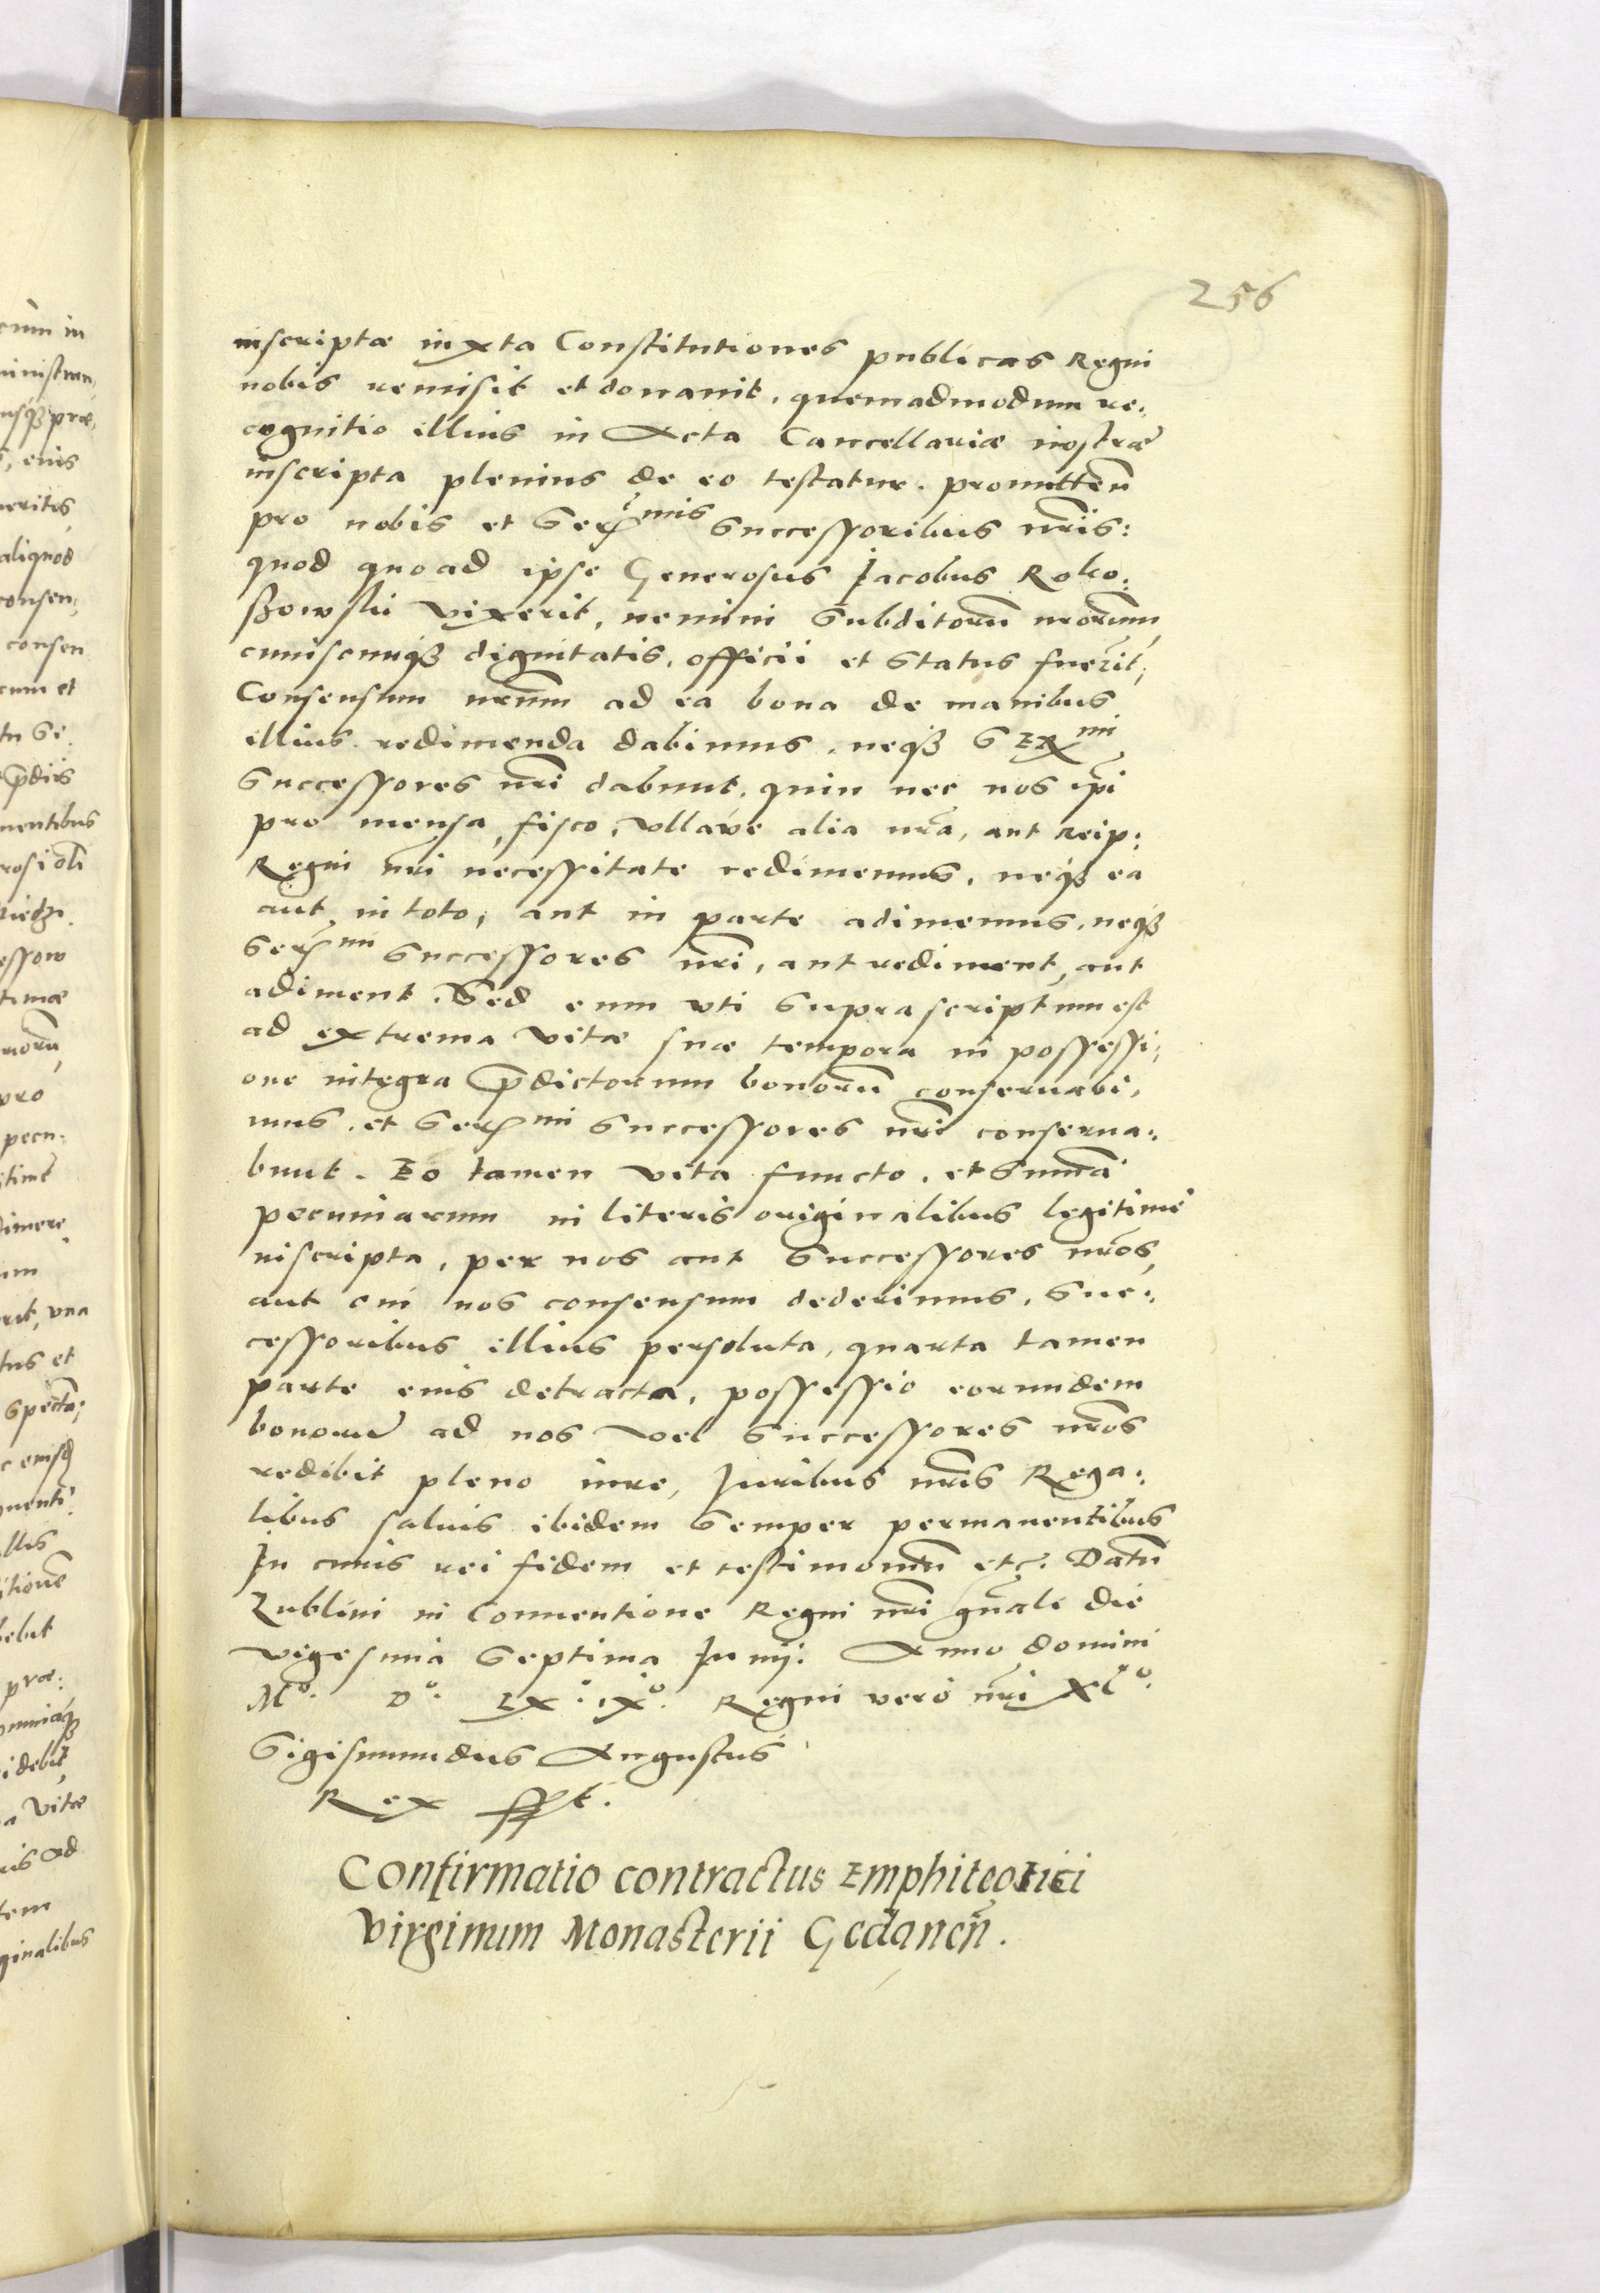 256
inscriptæ iuxta Constitutiones publicas Regni
nobis remisit et donauit, quemadmodum re:
cognitio illius in Acta Cancellariæ nostræ
inscripta plenius de eo testatur. promitten̄
pro nobis et Ser^mis Successoribus nr̄is:
quod quoad ipse Generosus Jacobus Roko:
ssowski vixerit, nemini Subditorū nr̄orum,
cuiuscunqȝ dignitatis, officii et Status fuerit,
Consensum nr̄um ad ea bona de manibus
illius redimenda dabimus, neqȝ Ser^mi
Successores nr̄i dabunt, quin nec nos ip̄i
pro mensa, fisco, vllave alia nr̄a, aut Reip:
Regni nr̄i necessitate redimemus, neqȝ ea
aut in toto, aut in parte adimemus, neqȝ
Ser^mi Successores nr̄i, aut rediment, aut
adiment. Sed eum vti supra scriptum est
ad extrema vitæ suæ tempora in possessi:
one integra p̄dictorum bonorū conseruabi,
mus, et Ser^mi Successores nr̄i conserua:
bunt. Eo tamen vita functo, et summa
pecuniarum in literis originalibus legitimè
inscripta, per nos aut Successores nr̄os,
aut cui nos consensum dederimus, Suc:
cessoribus illius persoluta, quarta tamen
parte eius detracta, possessio eorundem
bonorū ad nos vel Successores nr̄os
redibit pleno iure, Juribus nr̄is Rega:
libus saluis ibidem Semper permanentibus
In cuius rei fidem et testimoniū etc. Datū
Lublini in Conuentione Regni nr̄i gn̄ali die
vigesima Septima Junij. Anno domini
M^o. D^o. LX^o. ix^o. Regni vero nr̄i XL^o.
Sigismundus Augustus
Rex sst.
Confirmatio contractus Emphiteotici
Virginum Monasterii Gedanen̄.